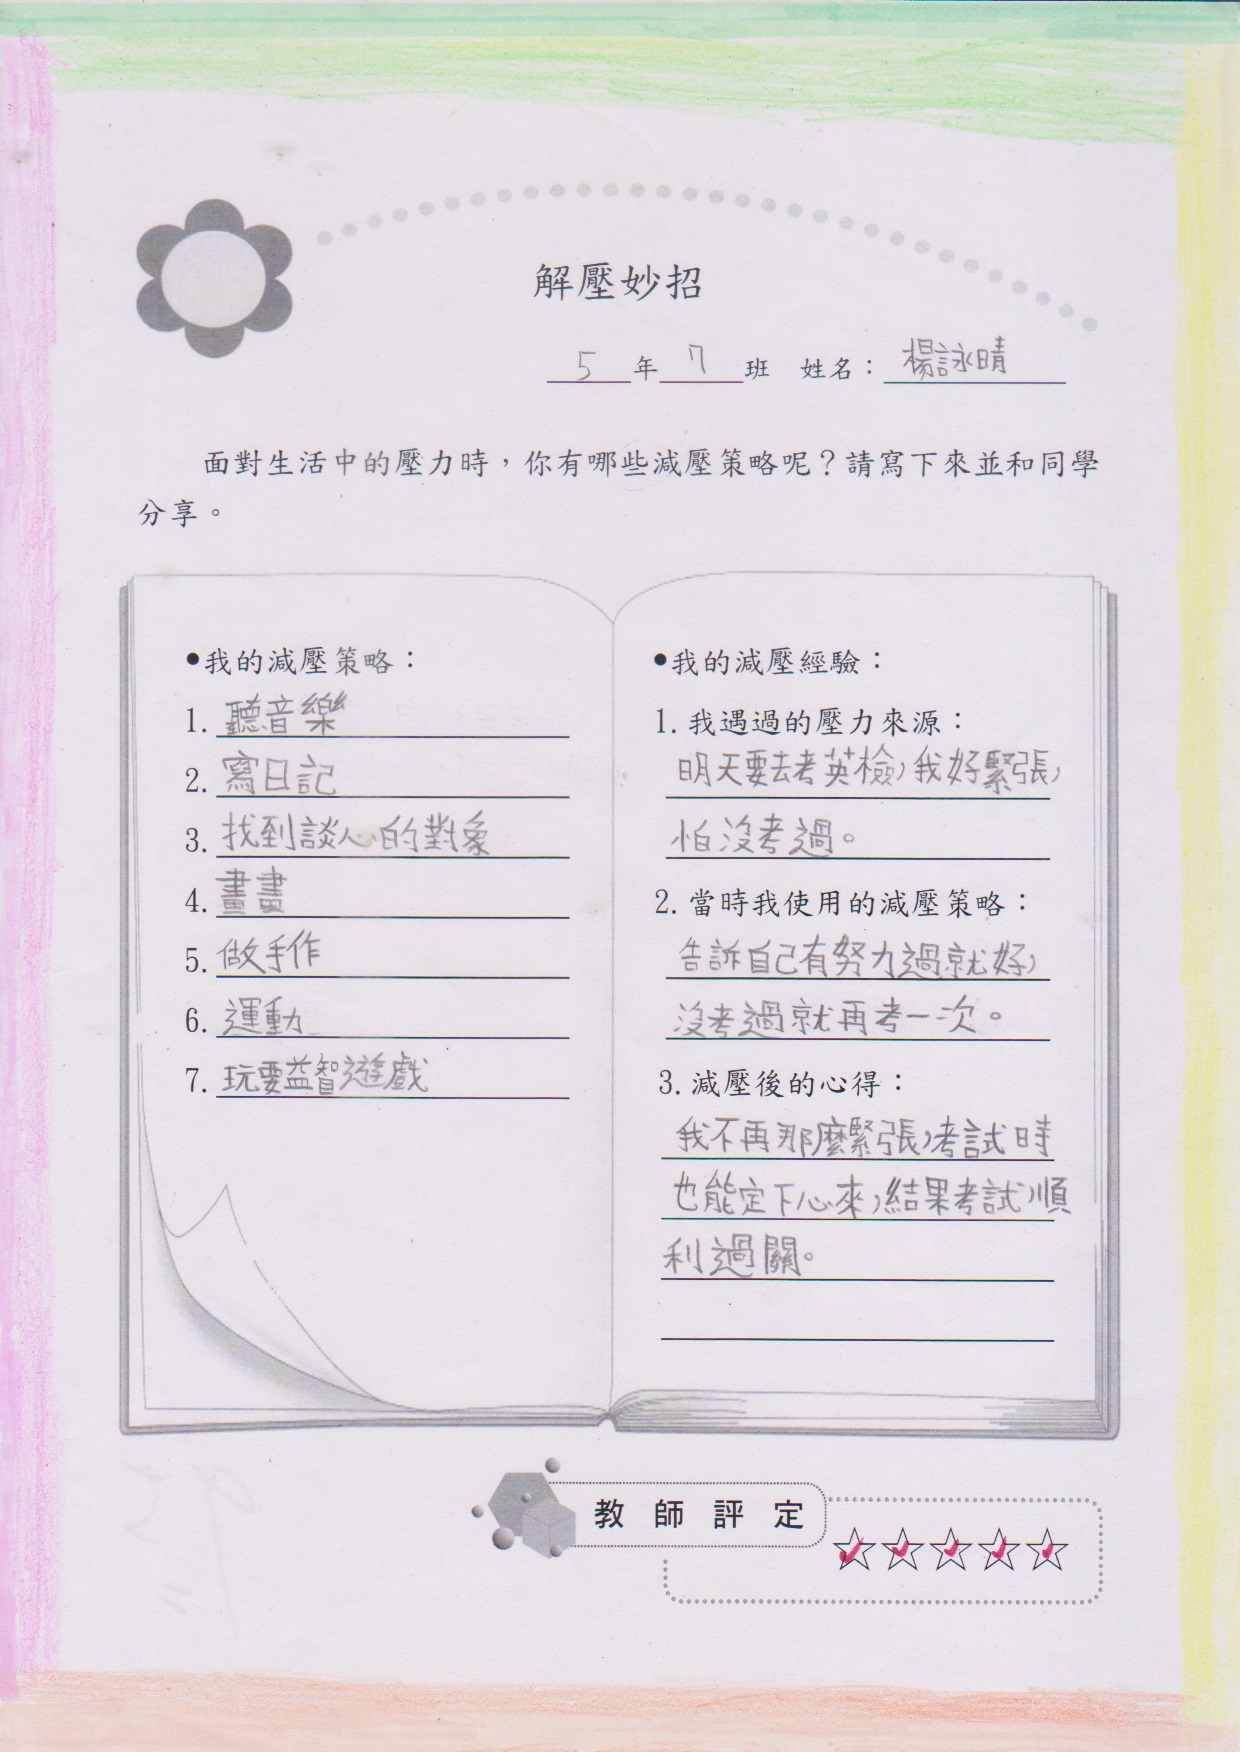 解壓妙招
5年7班 姓名：楊詠晴
面對生活中的壓力時，你有哪些減壓策略呢？請寫下來並和同學
分享。
●我的減壓策略：
1. 聽音樂
2. 寫日記
3. 找到談心的對象
4. 畫畫
5. 做手作
6. 運動
7. 玩要益智遊戲
●我的減壓經驗：
1. 我遇過的壓力來源：
明天要去考英檢，我好緊張，
怕沒考過。
2. 當時我使用的減壓策略：
告訴自己有努力過就好，
沒考過就再考一次。
3. 減壓後的心得：
我不再那麼緊張，考試時
也能定下心來，結果考試順
利過關。
教師評定